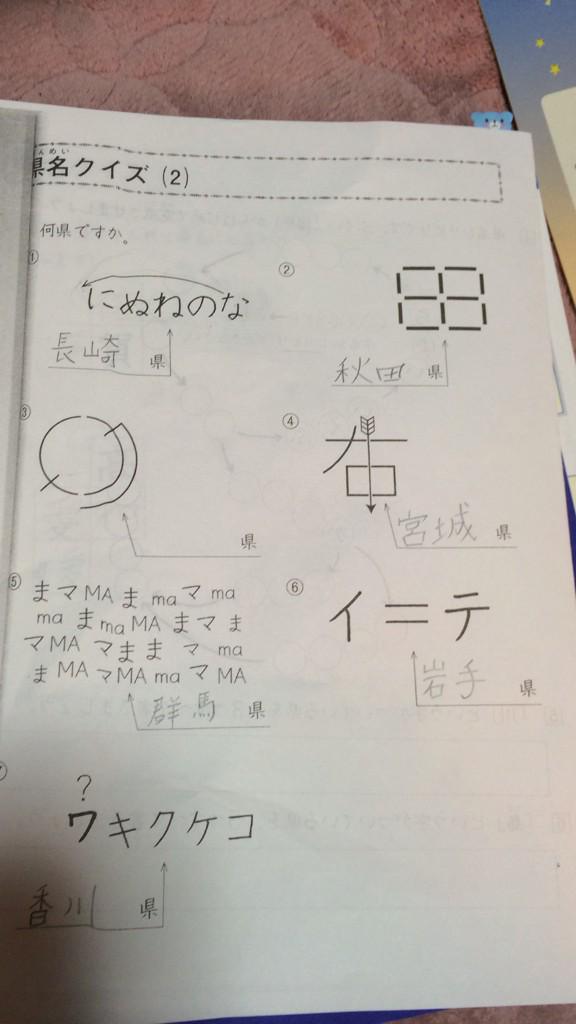 んめい
県名クイズ(2)
何県ですか。
①
にぬねのな
長崎 県
②
秋田 県
③
県
④
右
宮城 県
⑤
まマMAまmaマma
maまmaMAまマま
マMAマままマma
まMAマMAmaマMA
群馬 県
⑥
イ=テ
岩手 県
?
ワキクケコ
香川 県